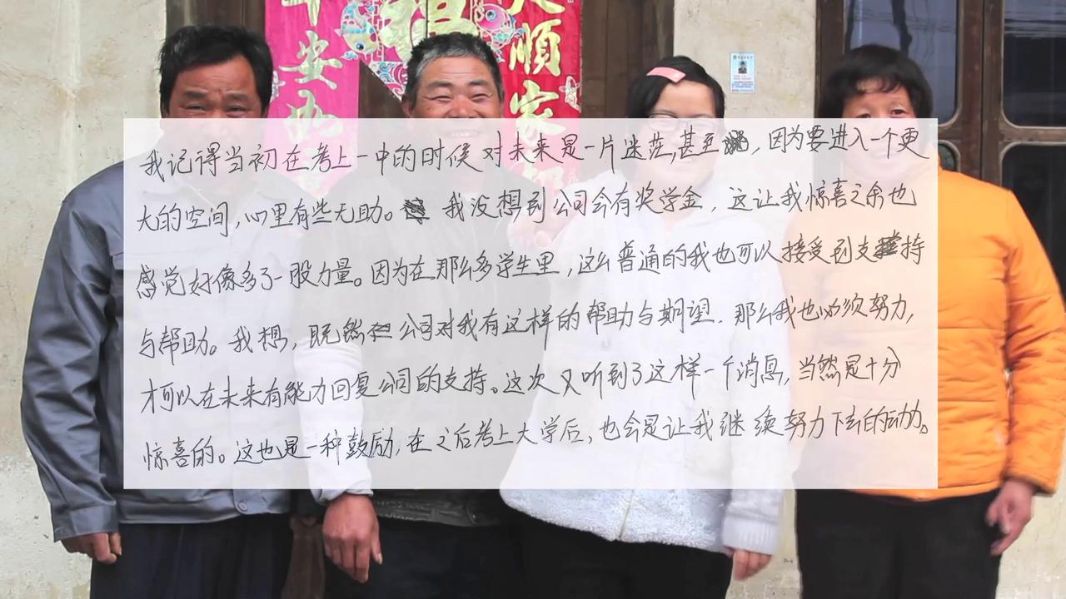 平安如
福
天順家
我记得当初在考上一中的时候对未来是一片迷茫,甚至,因为要进入一个更
大的空间,心里有些无助。我没想到公司会有奖学金,这让我惊喜之余也
感觉好像多了一股力量。因为在那么多学生里,这么普通的我也可以接受到支持
与帮助。我想,既然公司对我有这样的帮助与期望,那么我也必须努力,
才可以在未来有能力回复公司的支持。这次又听到了这样一个消息,当然是十分
惊喜的。这也是一种鼓励,在之后考上大学后,也会是让我继续努力下去的动力。